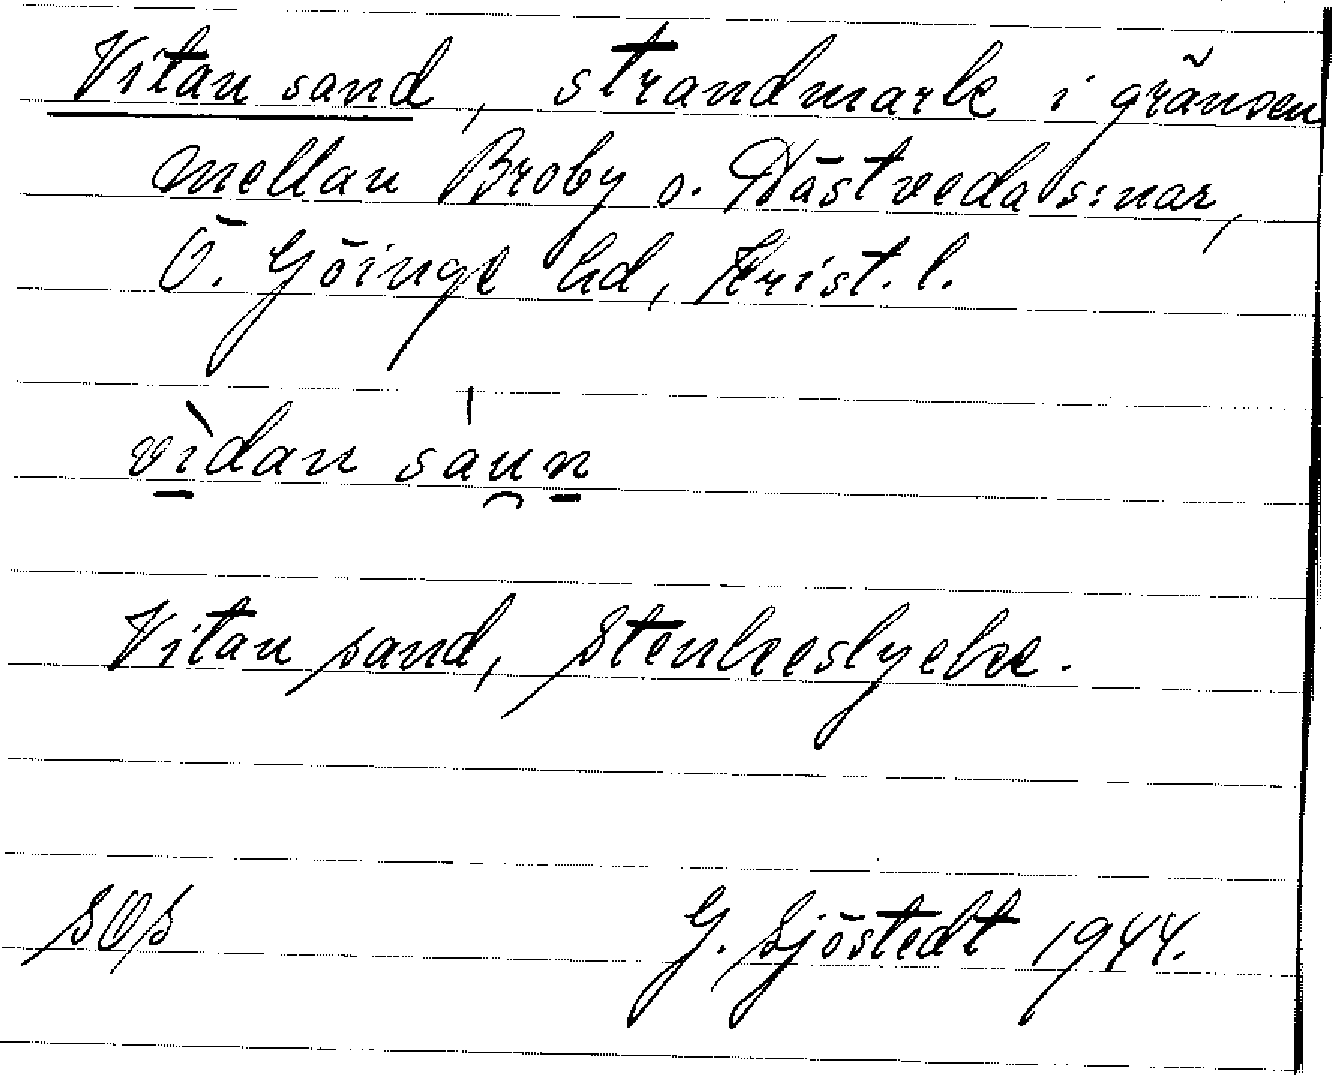 Vitan sand, strandmark i gränsen
mellan Broby o. Hästveda s:nar,
Ö. Göinge hd, Krist. l.
vìdan sàu̯n
Vitan sand,
SOS
G. Sjöstedt 1944.